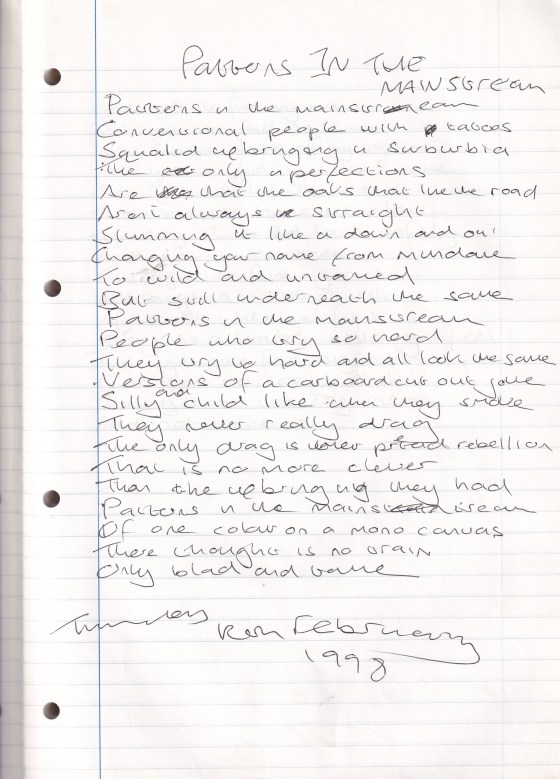 Patterns IN THE
MAINStream
Patterns in the mainstream
Conventional people with tatoos
Squalid upbringing in Surburbia
The only inperfections
Are that the oaks that line the road
Aren't always straight
Slumming it like a down and out
Changing your name from mundane
To wild and untamed
But still underneath the same
Patterns in the mainstream
People who try so hard
They try to hard and all look the same
Versions of a carboard cut out joke
Silly and child like when they smoke
They never really drag
The only drag is their rebellion
That is no more clever
Than the upbringing they had
Patterns in the mainstream
Of one colour on a mono canvas
There thought is no train
Only blad and tame
Thursday February
1998